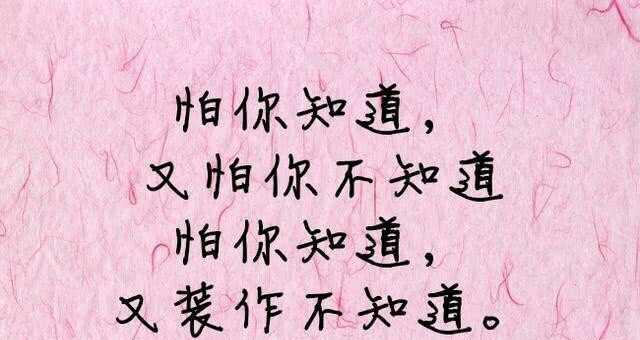 怕你知道，
又怕你不知道
怕你知道，
又装作不知道。